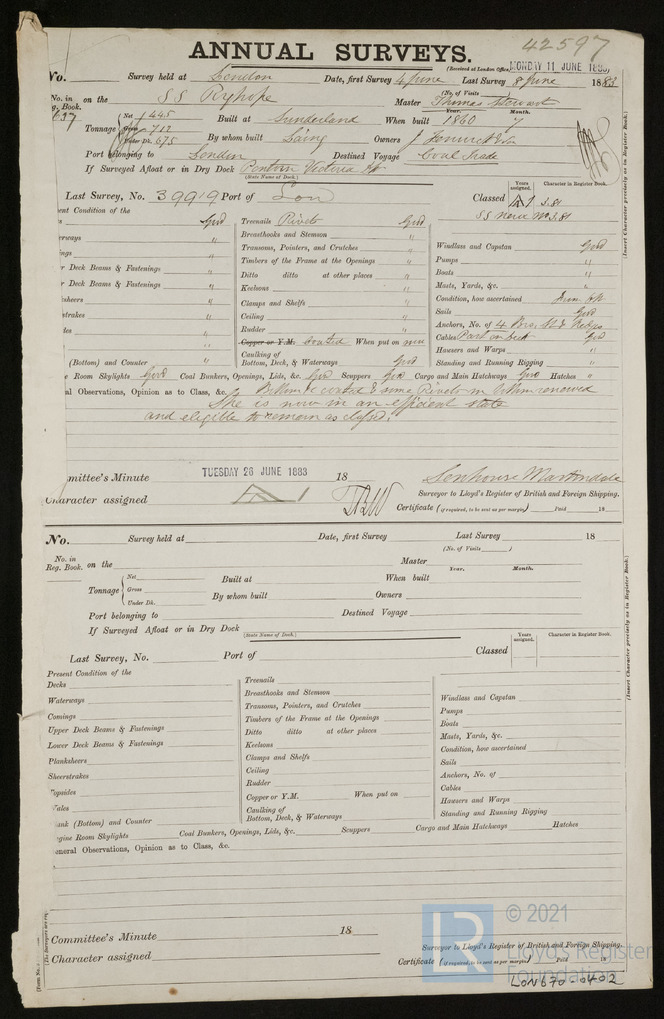 42597
ANNUAL SURVEYS.
(Received at London Office, MONDAY 11 JUNE 1883)
No. Survey held at London Date, first Survey 4 June Last Survey 8 June 1883
(No. of Visits)
No. in Reg. Book. on the SS Ryhope Master Thomas Stewart
Year. Month.
Tonnage Net 445 Gross 712 Under Dk. 675 Built at Sunderland When built 1860 7
By whom built Laing Owners J
Port belonging to London Destined Voyage Coal Trade
If Surveyed Afloat or in Dry Dock Victoria
(State Name of Dock.)
Last Survey, No. 39919 Port of Lon Classed A1 3.81
Years assigned. Character in Register Book.
SS No 3.81
(Insert Character precisely as in Register Book)
ent Condition of the
Good Treenails Rivets Good
erways " Breasthooks and Stemson "
ings " Transoms, Pointers, and Crutches " Windlass and Capstan Good
r Deck Beams & Fastenings " Timbers of the Frame at the Openings " Pumps "
Ditto ditto at other places " Boats "
r Deck Beams & Fastenings " Keelsons " Masts, Yards, &c. "
ksheers " Clamps and Shelfs " Condition, how ascertained
rstrakes " Ceiling " Sails Good
des " Rudder " Anchors, No. of 4
" Copper or Y.M. coated When put on now Cables Part on deck Good
Caulking of Hausers and Warps "
(Bottom) and Counter " Bottom, Deck, & Waterways Good Standing and Running Rigging "
e Room Skylights Good Coal Bunkers, Openings, Lids, &c. Good Scuppers Good Cargo and Main Hatchways Good Hatches "
al Observations, Opinion as to Class, &c. Bottom coated & some Rivets in bottom renewed
She is now in an efficient state
and eligible to remain as classed.
mmittee's Minute TUESDAY 26 JUNE 1883 18 Senhouse Martindale
Character assigned A1 Surveyor to Lloyd's Register of British and Foreign Shipping.
Certificate (if required, to be sent as per margin) Paid 18
No. Survey held at Date, first Survey Last Survey 18
(No. of Visits )
No. in Reg. Book. on the Master
Year. Month.
Tonnage Net Gross Under Dk. Built at When built
By whom built Owners
Port belonging to Destined Voyage
If Surveyed Afloat or in Dry Dock
(State Name of Dock.)
Years assigned. Character in Register Book.
Last Survey, No. Port of Classed
(Insert Character precisely as in Register Book)
Present Condition of the
Decks Treenails
Waterways Breasthooks and Stemson Windlass and Capstan
Comings Transoms, Pointers, and Crutches Pumps
Upper Deck Beams & Fastenings Timbers of the Frame at the Openings Boats
Ditto ditto at other places Masts, Yards, &c.
Lower Deck Beams & Fastenings Keelsons Condition, how ascertained
Planksheers Clamps and Shelfs Sails
Sheerstrakes Ceiling Anchors, No. of
Topsides Rudder Cables
Wales Copper or Y.M. When put on Hausers and Warps
ank (Bottom) and Counter Caulking of Bottom, Deck, & Waterways Standing and Running Rigging
ngine Room Skylights Coal Bunkers, Openings, Lids, &c. Scuppers Cargo and Main Hatchways Hatches
eneral Observations, Opinion as to Class, &c.
Committee's Minute 18
Character assigned Surveyor to Lloyd's Register of British and Foreign Shipping.
Certificate (if required, to be sent as per margin) Paid 18
© 2021
LR Lloyd's Register
Foundation
LON670-0402